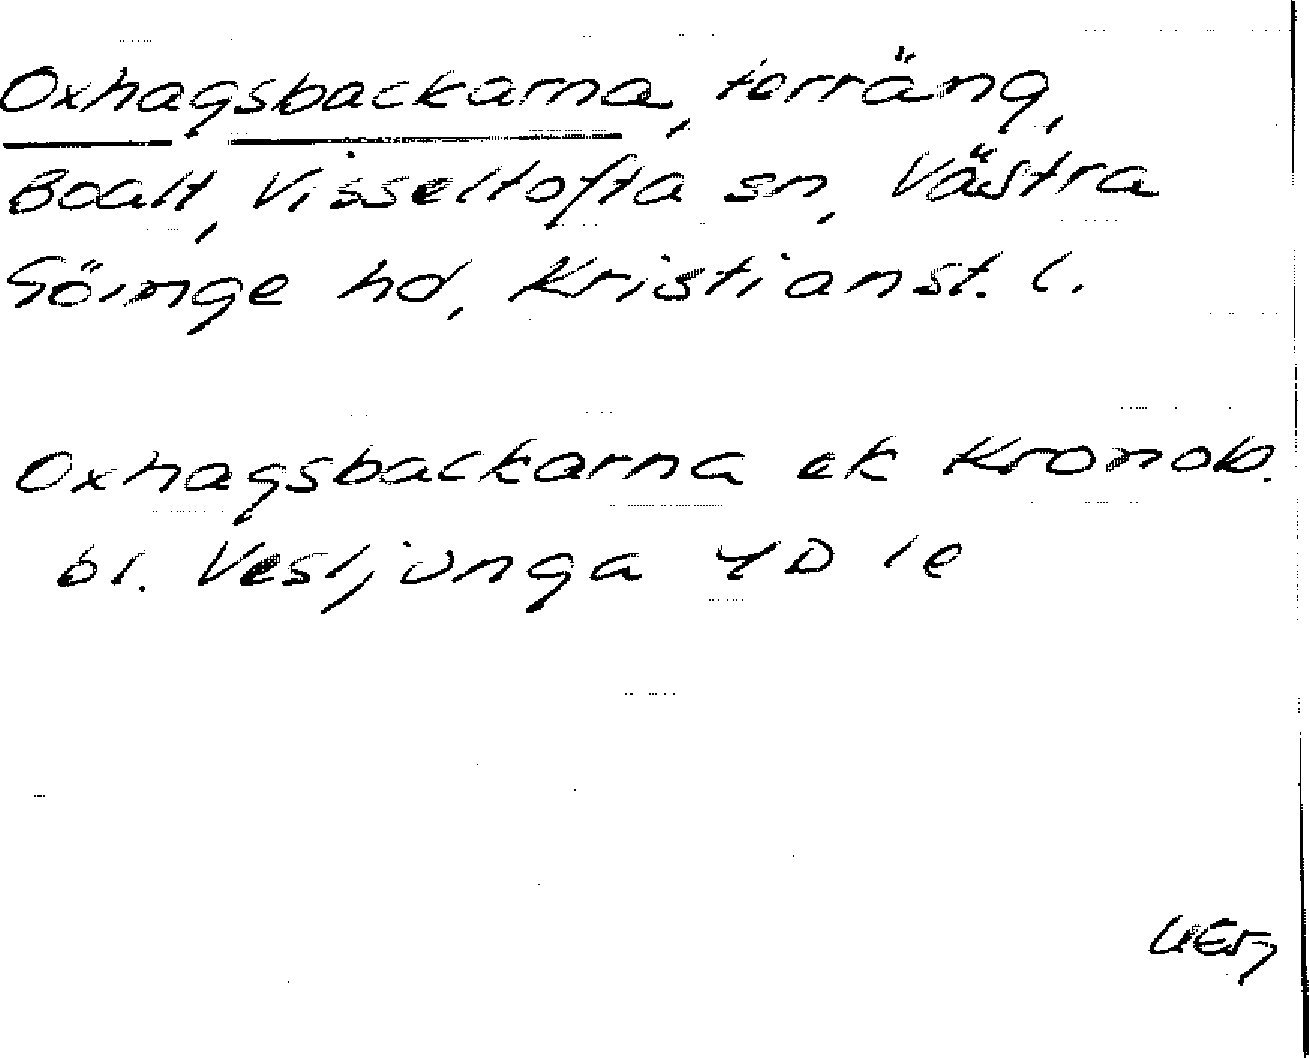 Oxhagsbackarna, terräng,
Boalt, Visseltofta sn, Västra
Göinge hd, Kristianst. l.
Oxhagsbackarna ek Kronob.
bl. Vesljunga 4D 1e